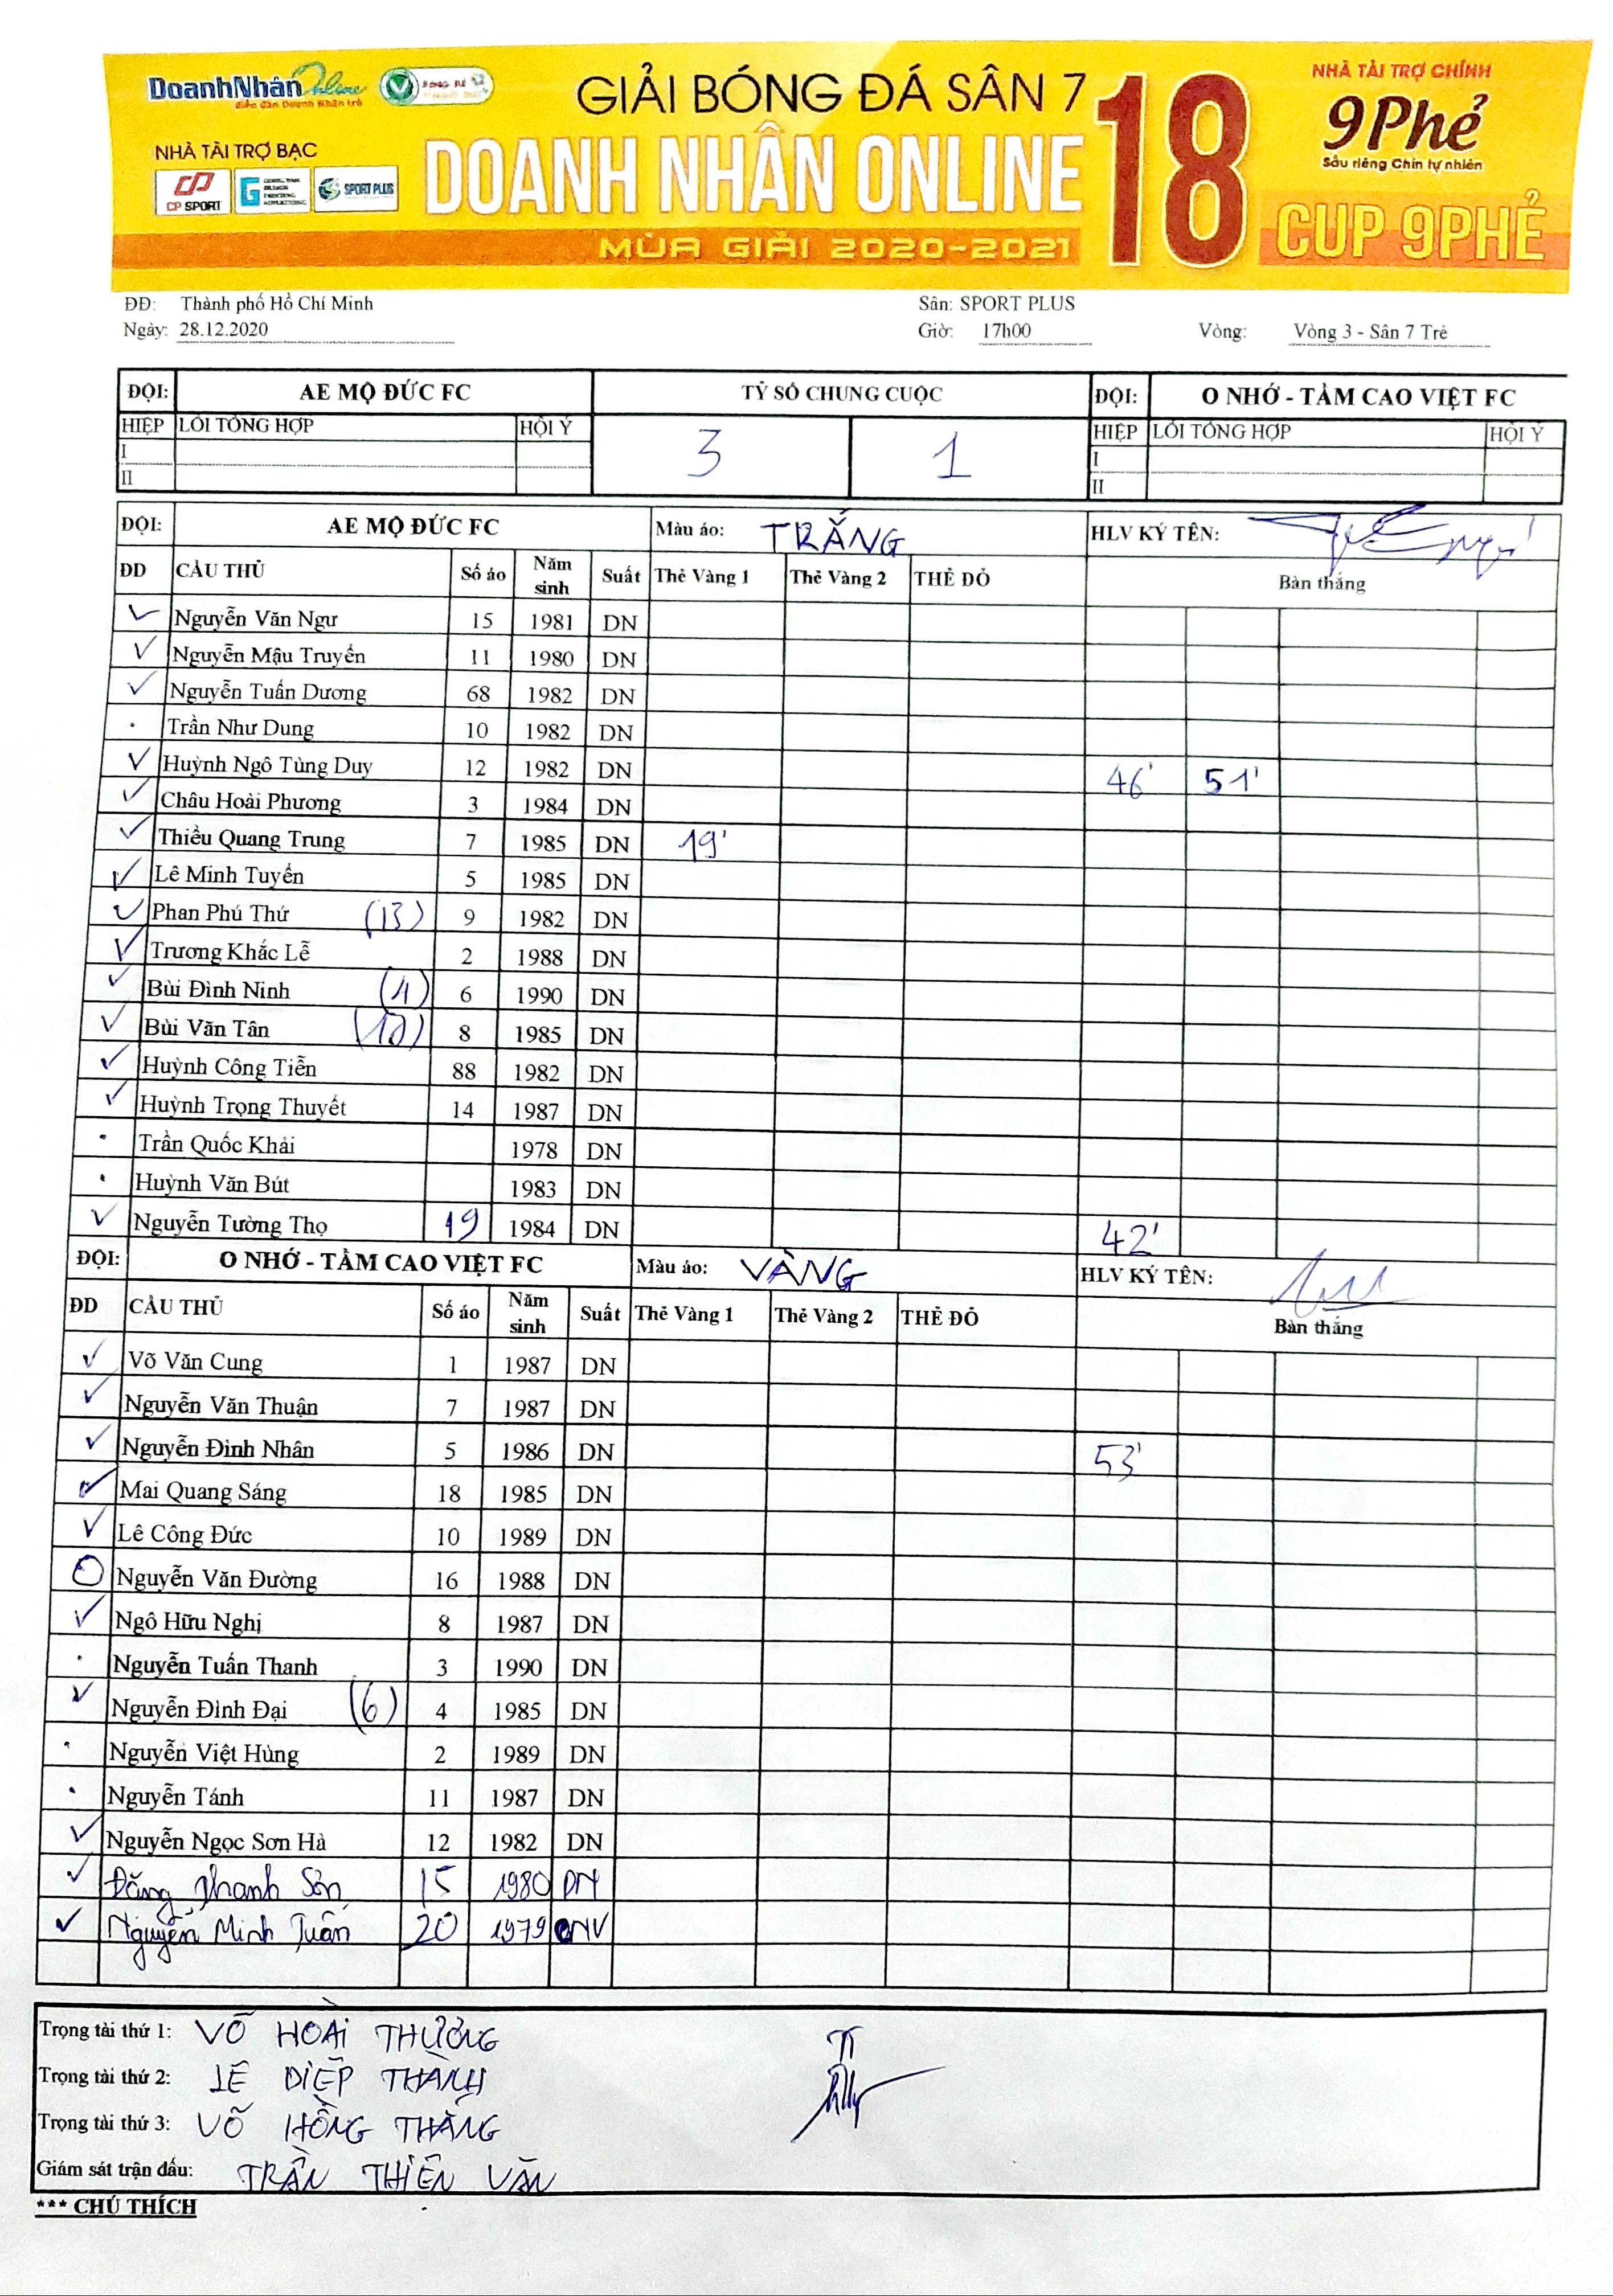 DoanhNhân Online
diễn đàn Doanh Nhân trẻ
GIẢI BÓNG ĐÁ SÂN 7
DOANH NHÂN ONLINE
18
MÙA GIẢI 2020-2021
NHÀ TÀI TRỢ CHÍNH
9Phẻ
Sầu riêng Chín tự nhiên
CUP 9PHẺ
NHÀ TÀI TRỢ BẠC
CP SPORT
SPORT PLUS
ĐĐ: Thành phố Hồ Chí Minh Sân: SPORT PLUS
Ngày: 28.12.2020 Giờ: 17h00 Vòng: Vòng 3 - Sân 7 Trẻ
ĐỘI: AE MỘ ĐỨC FC TỶ SỐ CHUNG CUỘC ĐỘI: O NHỚ - TẦM CAO VIỆT FC
HIỆP LỖI TỔNG HỢP HỘI Ý 3 1 HIỆP LỖI TỔNG HỢP HỘI Ý
I I
II II
ĐỘI: AE MỘ ĐỨC FC Màu áo: TRẮNG HLV KÝ TÊN:
ĐD CẦU THỦ Số áo Năm sinh Suất Thẻ Vàng 1 Thẻ Vàng 2 THẺ ĐỎ Bàn thắng
✓ Nguyễn Văn Ngư 15 1981 DN
✓ Nguyễn Mậu Truyền 11 1980 DN
✓ Nguyễn Tuấn Dương 68 1982 DN
. Trần Như Dung 10 1982 DN
✓ Huỳnh Ngô Tùng Duy 12 1982 DN 46' 51'
✓ Châu Hoài Phương 3 1984 DN
✓ Thiều Quang Trung 7 1985 DN 19'
✓ Lê Minh Tuyển 5 1985 DN
✓ Phan Phú Thứ (13) 9 1982 DN
✓ Trương Khắc Lễ 2 1988 DN
✓ Bùi Đình Ninh (4) 6 1990 DN
✓ Bùi Văn Tân (10) 8 1985 DN
✓ Huỳnh Công Tiễn 88 1982 DN
✓ Huỳnh Trọng Thuyết 14 1987 DN
. Trần Quốc Khải 1978 DN
. Huỳnh Văn Bút 1983 DN
✓ Nguyễn Tường Thọ 19 1984 DN 42'
ĐỘI: O NHỚ - TẦM CAO VIỆT FC Màu áo: VÀNG HLV KÝ TÊN:
ĐD CẦU THỦ Số áo Năm sinh Suất Thẻ Vàng 1 Thẻ Vàng 2 THẺ ĐỎ Bàn thắng
✓ Võ Văn Cung 1 1987 DN
✓ Nguyễn Văn Thuận 7 1987 DN
✓ Nguyễn Đình Nhân 5 1986 DN 53'
✓ Mai Quang Sáng 18 1985 DN
✓ Lê Công Đức 10 1989 DN
Nguyễn Văn Đường 16 1988 DN
✓ Ngô Hữu Nghị 8 1987 DN
. Nguyễn Tuấn Thanh 3 1990 DN
✓ Nguyễn Đình Đại (6) 4 1985 DN
. Nguyễn Việt Hùng 2 1989 DN
. Nguyễn Tánh 11 1987 DN
✓ Nguyễn Ngọc Sơn Hà 12 1982 DN
✓ Đặng Thanh Sơn 15 1980 DN
✓ Nguyễn Minh Tuấn 20 1979
Trọng tài thứ 1: VÕ HOÀI THƯƠNG
Trọng tài thứ 2: LÊ DIỆP THÀNH
Trọng tài thứ 3: VÕ HỒNG THẮNG
Giám sát trận đấu: TRẦN THIÊN VĂN
*** CHÚ THÍCH